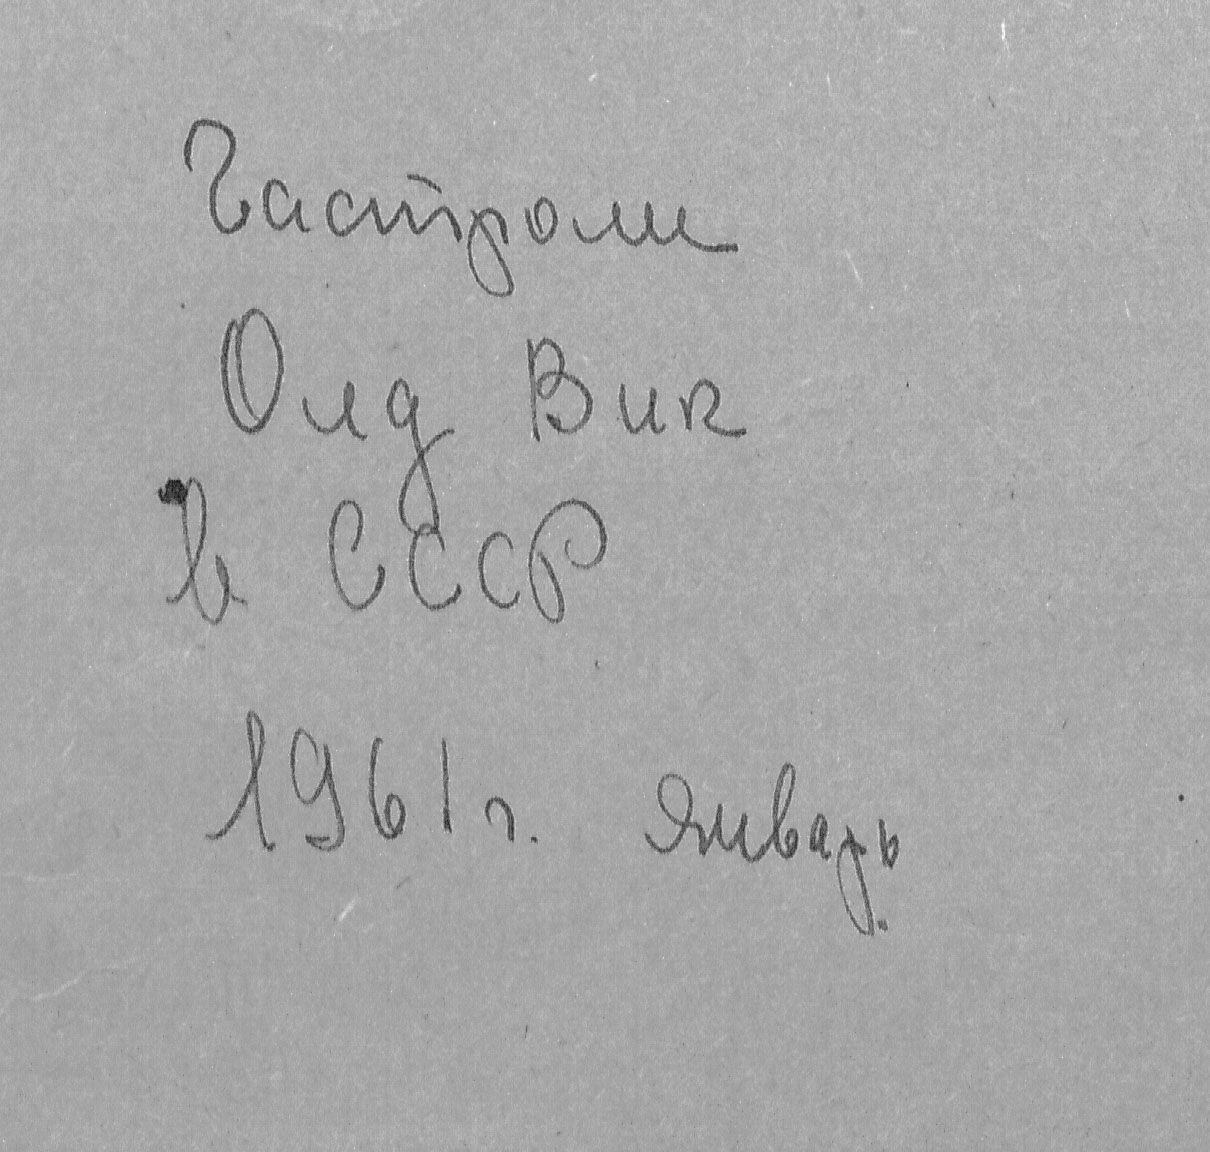 Гастроли
Олд Вик
в СССР
1961 г. январь.